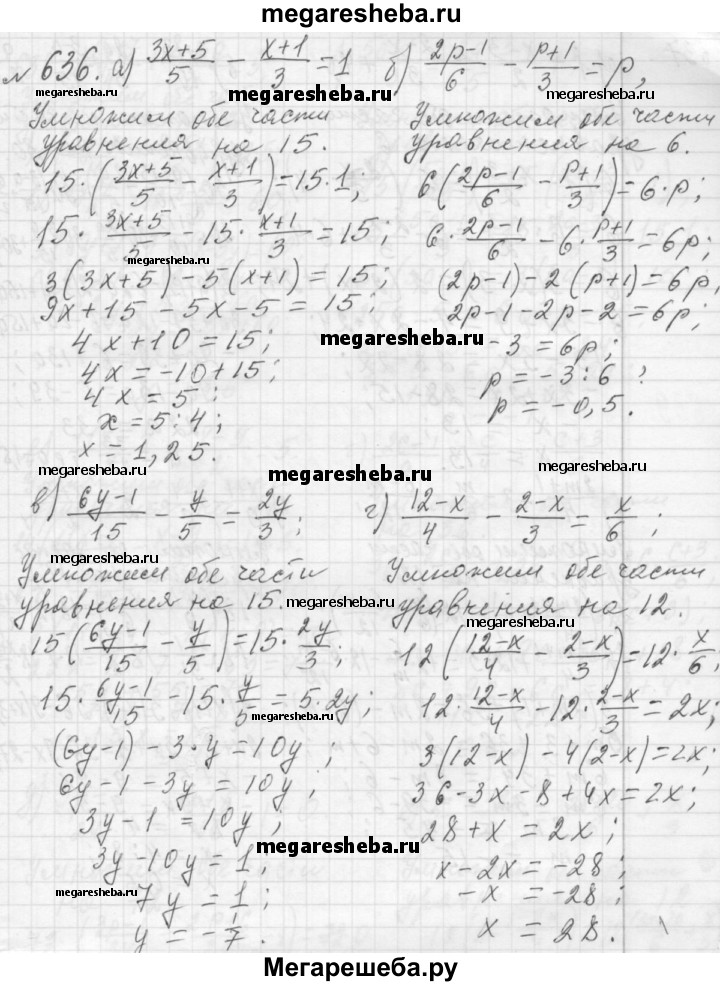 megaresheba.ru
№ 636. а) (3x+5)/5 − (x+1)/3 = 1
Умножим обе части
уравнения на 15.
15·((3x+5)/5 − (x+1)/3) = 15·1;
15·(3x+5)/5 − 15·(x+1)/3 = 15;
3(3x+5) − 5(x+1) = 15;
9x+15 − 5x−5 = 15;
4x+10 = 15;
4x = −10+15;
4x = 5;
x = 5:4;
x = 1,25.
б) (2p−1)/6 − (p+1)/3 = p,
Умножим обе части
уравнения на 6.
6((2p−1)/6 − (p+1)/3) = 6·p;
6·(2p−1)/6 − 6·(p+1)/3 = 6p;
(2p−1)−2(p+1) = 6p,
2p−1−2p−2 = 6p;
−3 = 6p;
p = −3:6
p = −0,5.
в) (6y−1)/15 − y/5 = 2y/3;
Умножим обе части
уравнения на 15.
15((6y−1)/15 − y/5) = 15·2y/3;
15·(6y−1)/15 − 15·y/5 = 5·2y;
(6y−1) − 3·y = 10y;
6y−1−3y = 10y;
3y−1 = 10y;
3y−10y = 1;
7y = 1;
y = −1/7.
г) (12−x)/4 − (2−x)/3 = x/6;
Умножим обе части
уравнения на 12.
12((12−x)/4 − (2−x)/3) = 12·x/6;
12·(12−x)/4 − 12·(2−x)/3 = 2x;
3(12−x) − 4(2−x) = 2x;
36−3x−8+4x = 2x;
28+x = 2x;
x−2x = −28;
−x = −28;
x = 28.
megaresheba.ru
megaresheba.ru
megaresheba.ru
megaresheba.ru
megaresheba.ru
megaresheba.ru
megaresheba.ru
megaresheba.ru
megaresheba.ru
megaresheba.ru
megaresheba.ru
megaresheba.ru
megaresheba.ru
megaresheba.ru
Мегарешеба.ру